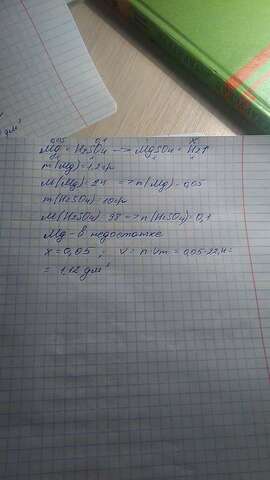 0,05 0,1 x
Mg + H2SO4 → MgSO4 + H2↑
m(Mg) = 1,2 гр
M(Mg) = 24 => n(Mg) = 0,05
m(H2SO4) = 10 гр
M(H2SO4) = 98 => n(H2SO4) = 0,1
Mg - в недостатке
x = 0,05 ; V = n·Vm = 0,05·22,4 =
= 1,12 дм³
дм³